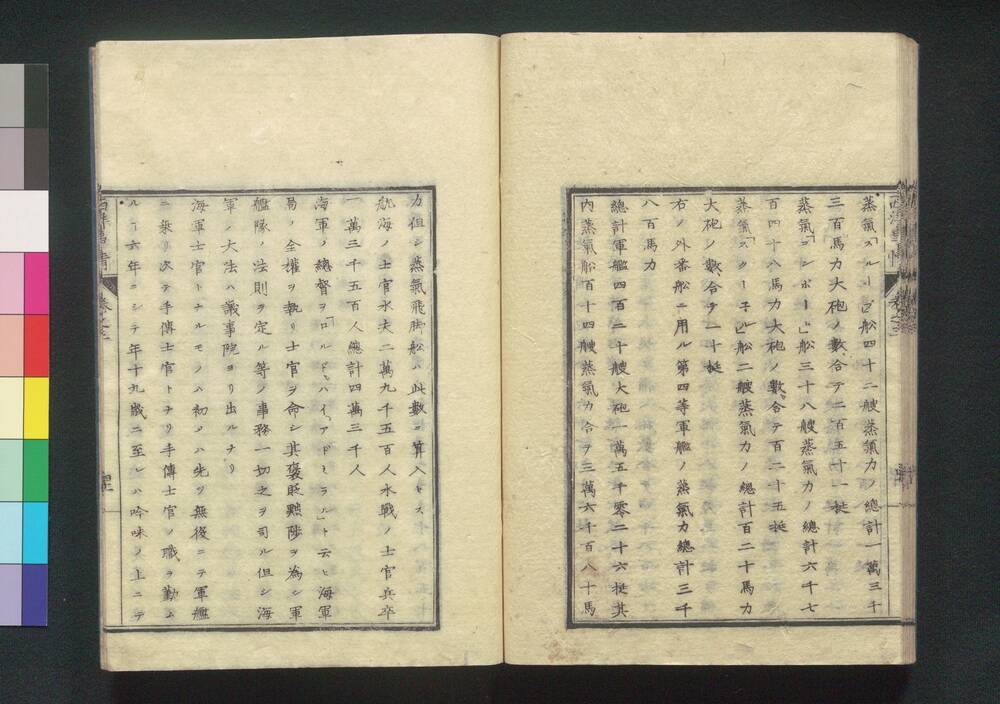 蒸氣「スループ」船四十二艘蒸氣力ノ總計一萬三千
三百馬力大砲ノ數合テ二百五十一挺
蒸氣「ゴンボート」船三十八艘蒸氣力ノ總計六千七
百四十八馬力大砲ノ數合テ百二十五挺
蒸氣「スクーネル」船二艘蒸氣力ノ總計百二十馬力
大砲ノ數合テ二十挺
右ノ外番船ニ用ル第四等軍艦ノ蒸氣力總計三千
八百馬力
總計軍艦四百二十艘大砲一萬五千零二十六挺其
内蒸氣船百十四艘蒸氣力合テ三萬六千百八十馬
力但シ蒸氣飛脚船ハ此數ニ算入セス
航海ノ士官水夫二萬九千五百人水戰ノ士官兵卒
一萬三千五百人總計四萬三千人
海軍ノ總督ヲ「ロルド、ハイ、アドミラル」ト云ヒ海軍
局ノ全權ヲ執リ士官ヲ命シ其褒貶黜陟ヲ為シ軍
艦隊ノ法則ヲ定ル等ノ事務一切之ヲ司ル但シ海
軍ノ大法ハ議事院ヨリ出ルナリ
海軍士官トナルモノハ初メハ先ツ無役ニテ軍艦
ニ乘リ次テ手傳士官トナリ手傳士官ノ職ヲ勤ム
ルヿ六年ニシテ年十九歳ニ至レハ吟味ノ上ニテ
西洋事情 卷之三